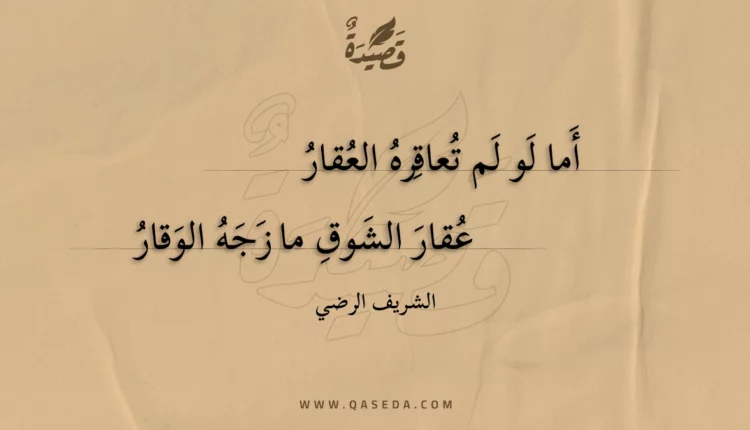 قَصِيدَةٌ
أَما لَو لَم تُعاقِرهُ العُقارُ
عُقارَ الشَوقِ مازَجَهُ الوَقارُ
الشريف الرضي
WWW.QASEDA.COM